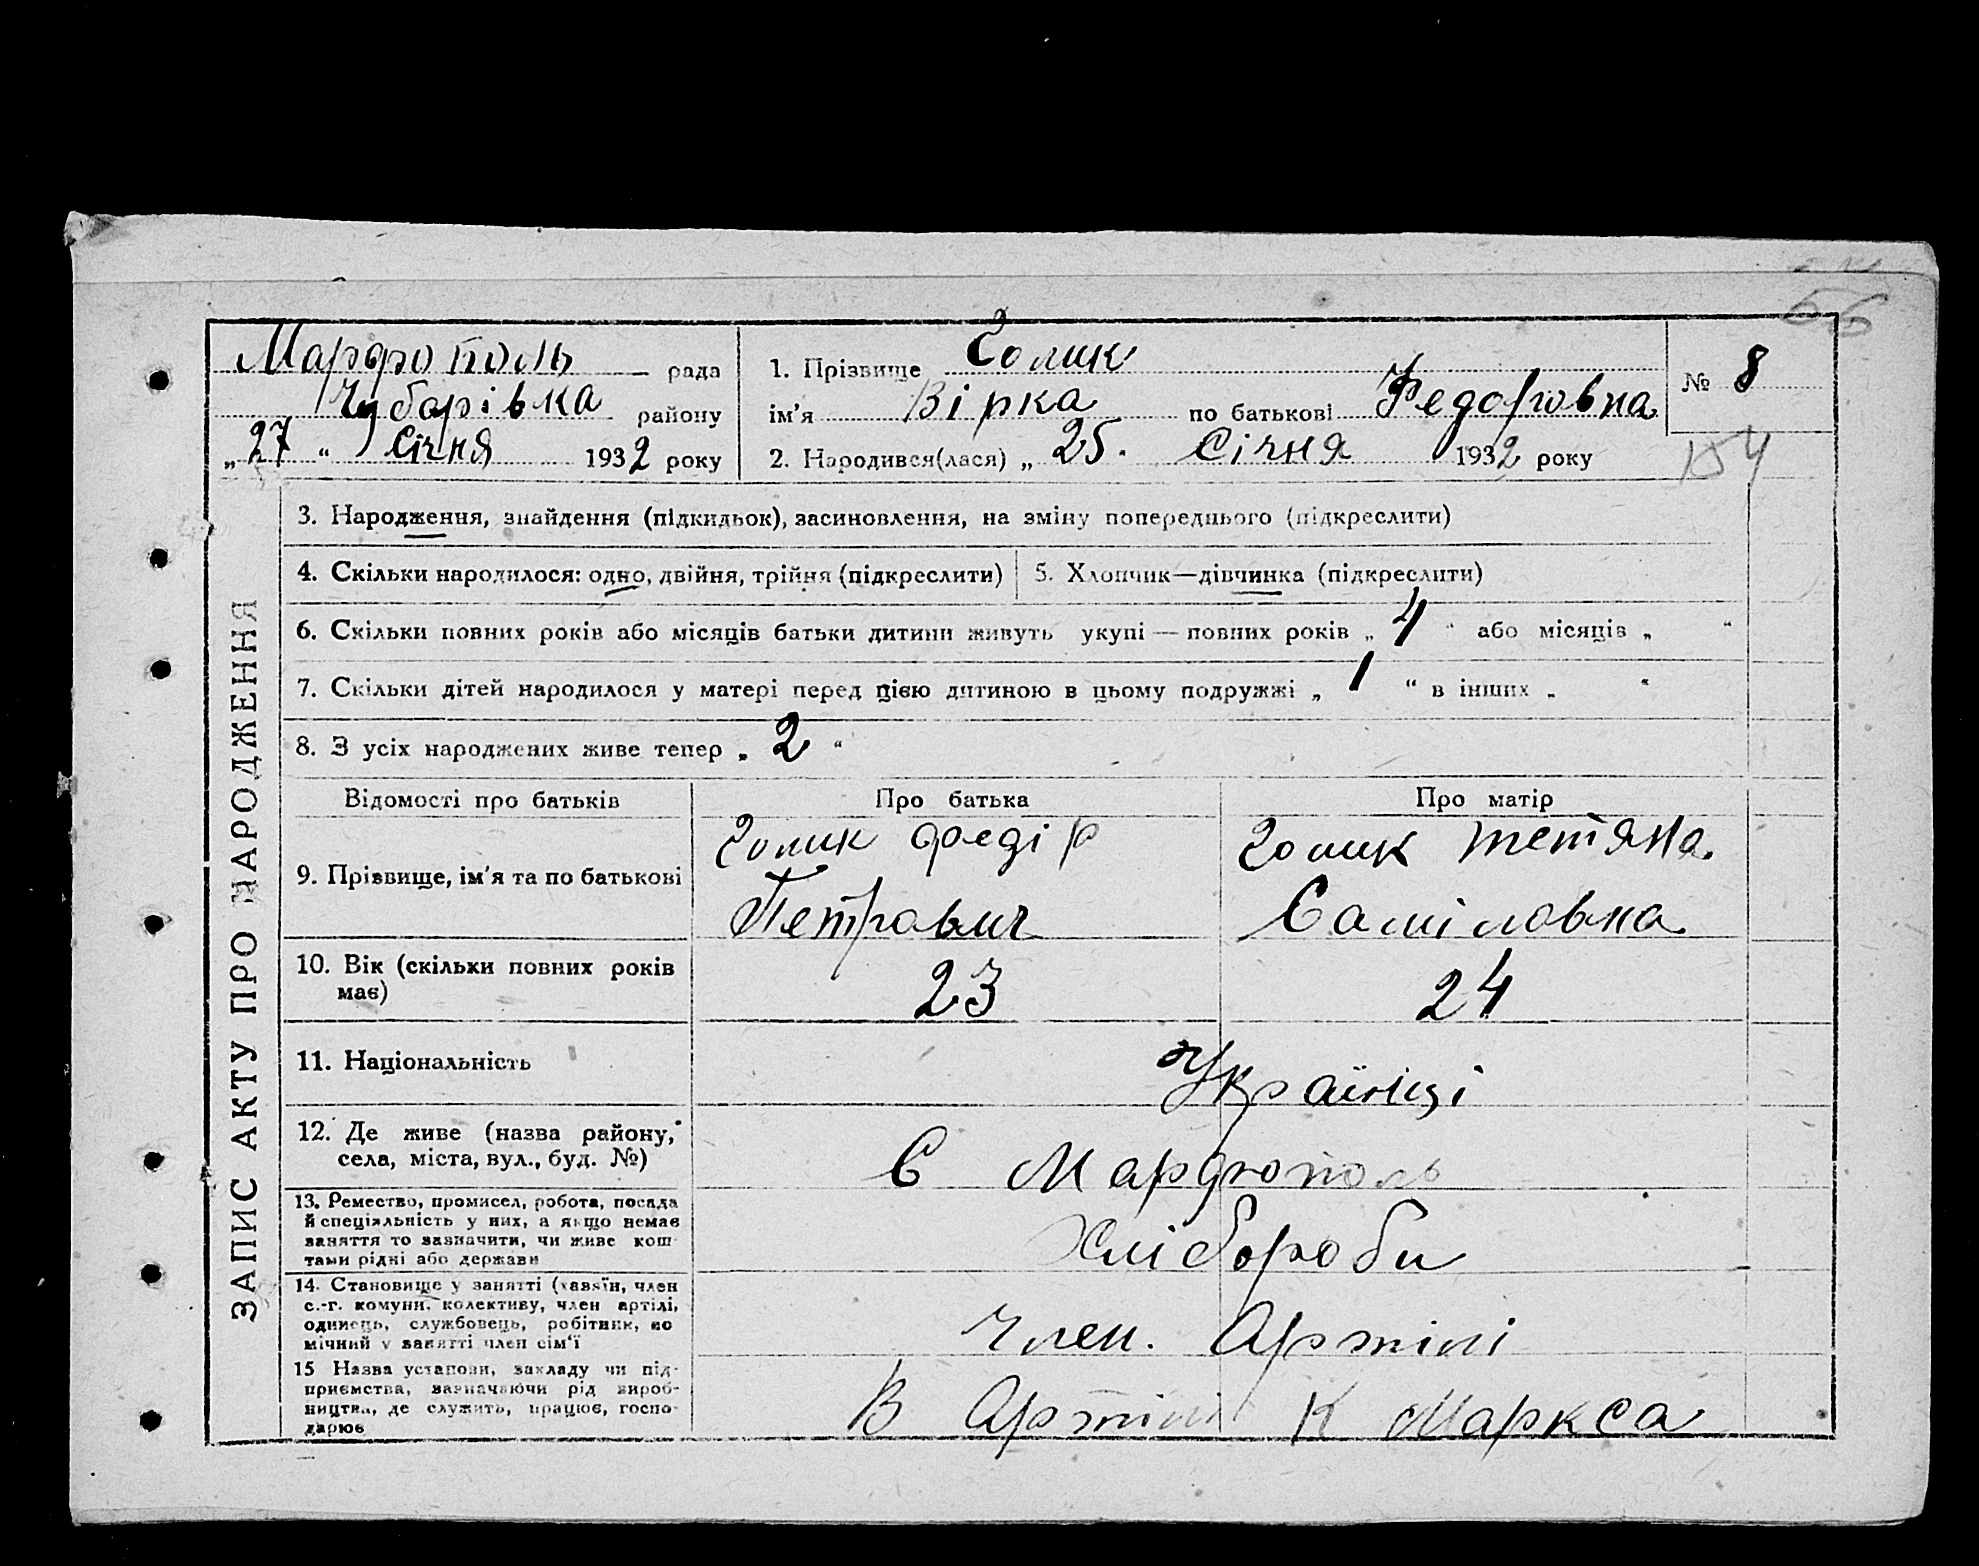 56
Марфополь рада
Чубарівка району
„27“ Січня 1932 року
1. Прізвище Голик
ім'я Вірка по батькові Федоровна
2. Народився(лася) „25. Січня 1932 року
№ 8
154
ЗАПИС АКТУ ПРО НАРОДЖЕННЯ
3. Народження, знайдення (підкидьок), засиновлення, на зміну попереднього (підкреслити)
4. Скільки народилося: одно, двійня, трійня (підкреслити) 5. Хлопчик—дівчинка (підкреслити)
6. Скільки повних років або місяців батьки дитини живуть укупі — повних років „4“ або місяців „ “
7. Скільки дітей народилося у матері перед цією дитиною в цьому подружжі „1“ в інших „ “
8. З усіх народжених живе тепер „2“
Відомості про батьків Про батька Про матір
9. Прізвище, ім'я та по батькові
Голик Федір
Петрович
Голик Тетяна.
Саміловна
10. Вік (скільки повних років
має)
23 24
11. Національність
Українці
12. Де живе (назва району,
села, міста, вул., буд. №)
С Марфополь
13. Ремество, промисел, робота, посада
й спеціяльність у них, а якщо немає
заняття то зазначити, чи живе кош-
тами рідні або держави
Хлібороби
14. Становище у занятті (хазяїн, член
с.-г. комуни, колективу, член артілі,
одинець, службовець, робітник, по
мічний у занятті член сім'ї
Член. Артілі
15 Назва установи, закладу чи під-
приємства, зазначаючи рід вироб-
ництва, де служить, працює, госпо-
дарює
В Артілі К Маркса